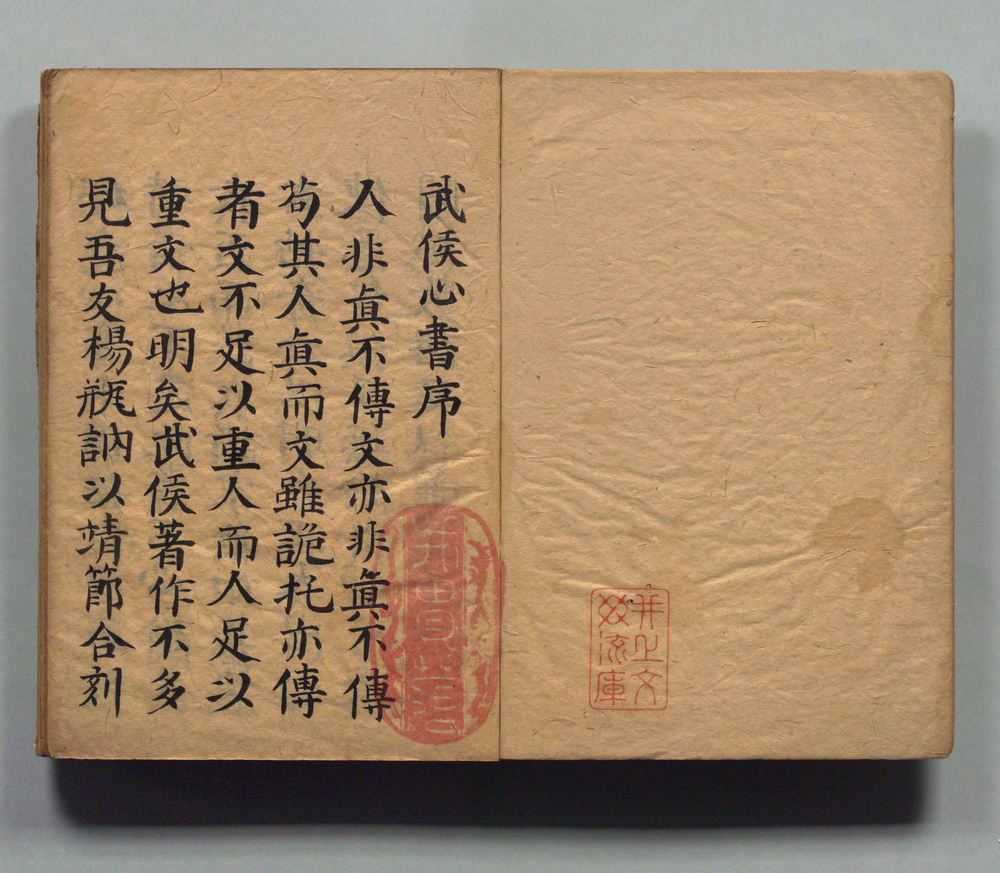 武侯心書序
人非眞不傳文亦非眞不傳
茍其人眞而文雖詭托亦傳
者文不足以重人而人足以
重文也明矣武侯著作不多
見吾友楊瓶訥以靖節合刻